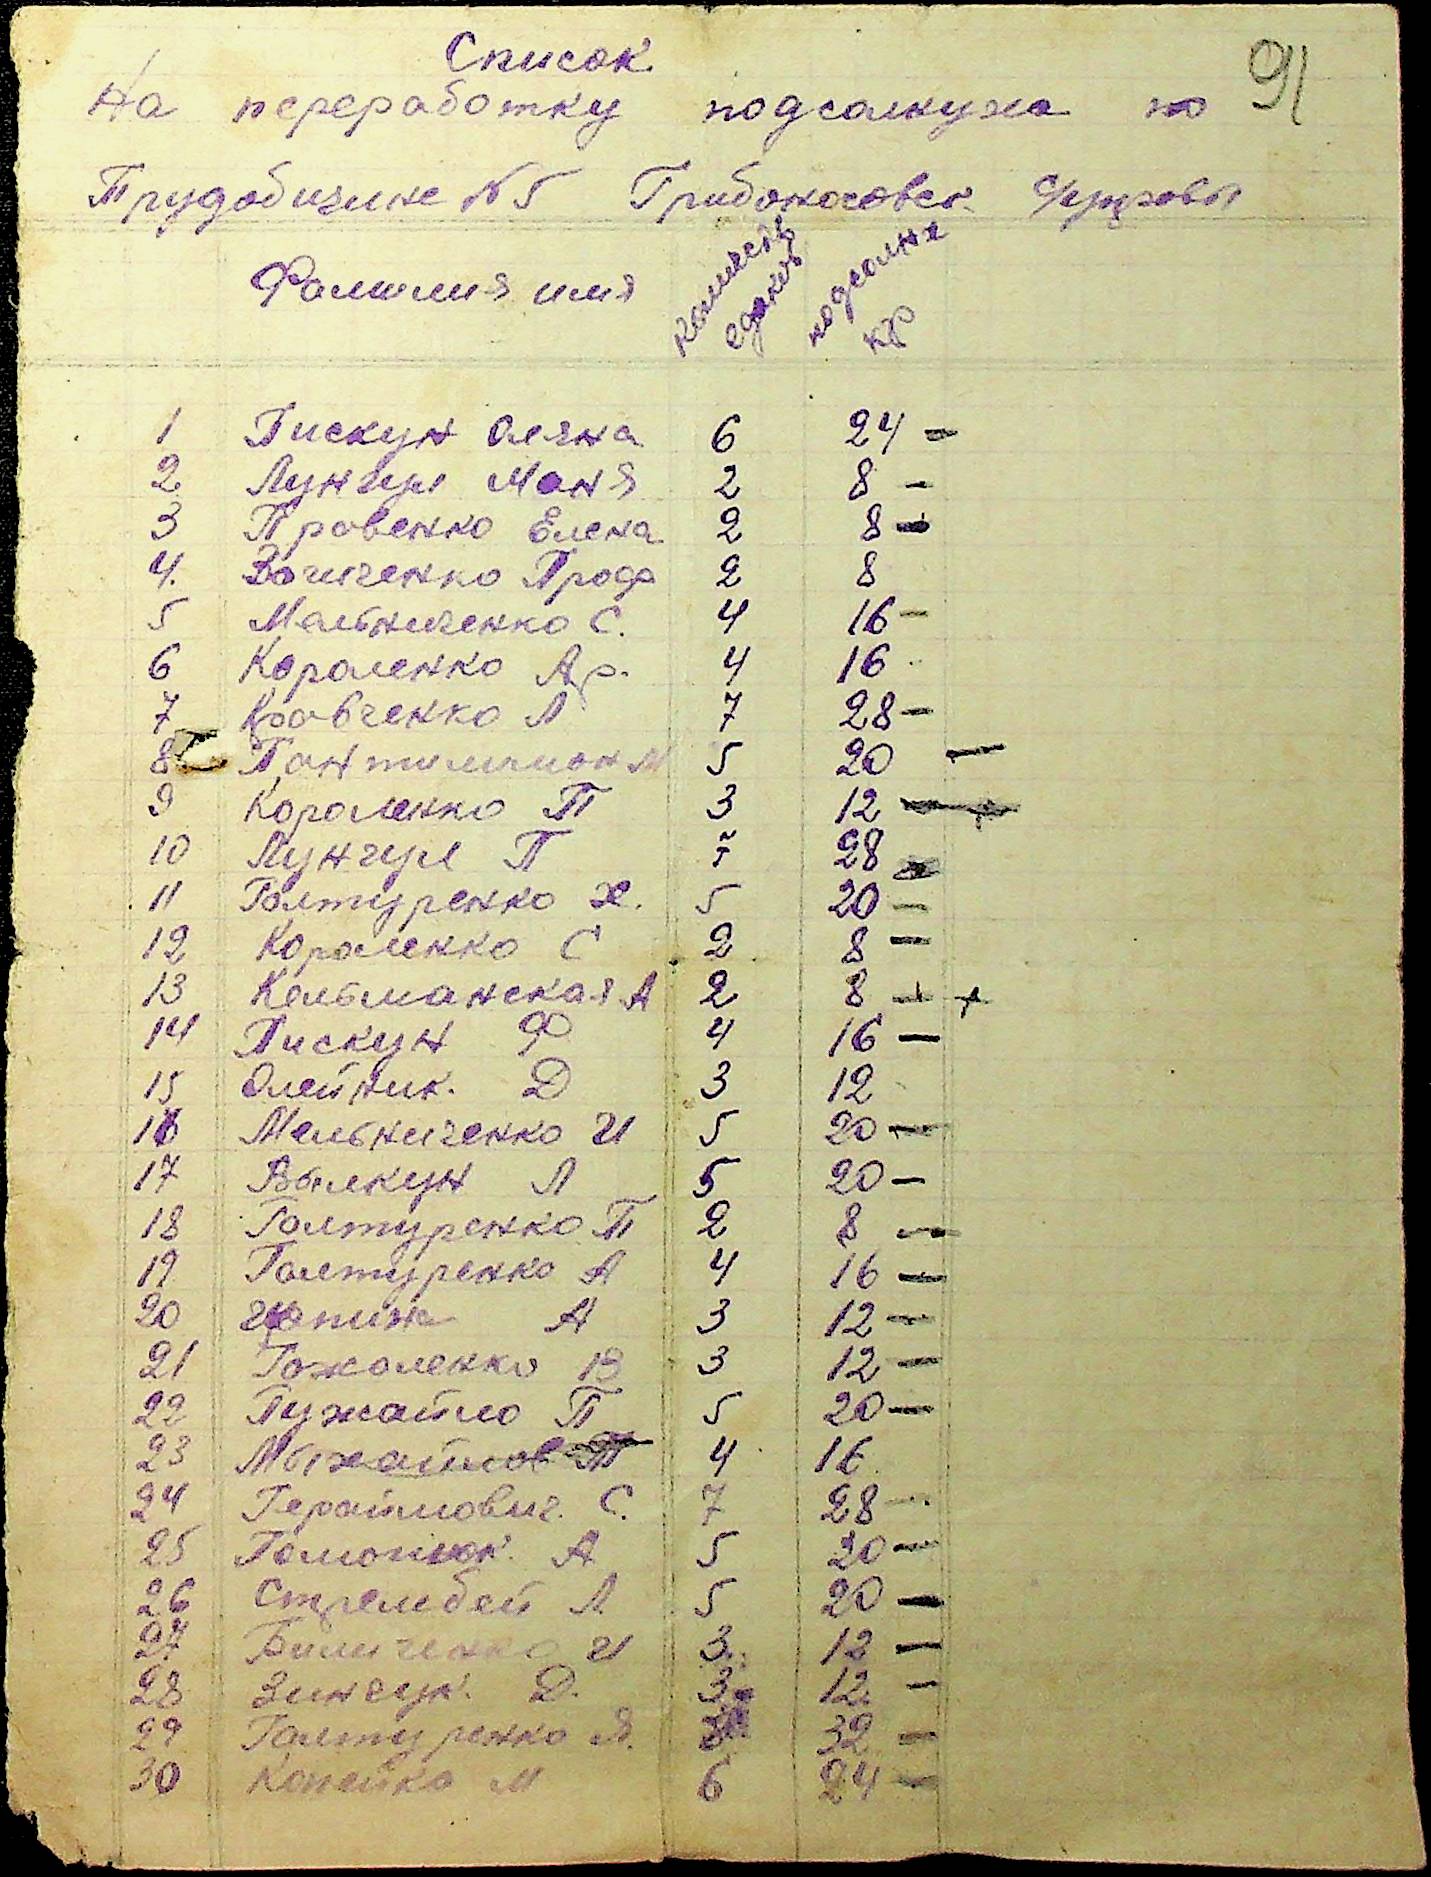 Список
91
На переработку подсолнуха по
Трудобщине №5
Фамилия имя Количеств едаков подсолнх кгр
1 Пискун Оляна 6 24 -
2 Лунгул Маня 2 8 -
3 Провенко Елена 2 8 -
4. 2 8
5 Мельниченко С. 4 16 -
6 Короленко Ар. 4 16
7 Кравченко Л 7 28 -
8 Пантилимон М 5 20 -
9 Короленко П 3 12 -
10 Лунгул П 28
11 Голтуренко Х. 5 20 -
12 Короленко С 2 8 -
13 Кельманская А 2 8 - +
14 Пискун Ф 4 16 -
15 Олейник. Д 3 12
16 Мельниченко И 5 20 -
17 Вылкун Л 5 20 -
18 Голтуренко П 2 8 -
19 Голтуренко А 4 16 -
20 А 3 12 -
21 Гожоленко В 3 12 -
22 Пужайло П 5 20 -
23 Мыхайлов П 4 16
24 Герайлович. С. 7 28 -
25 Гомонюк. А 5 20 -
26 Стрембей Л 5 20 -
27 Биличенко И 3 12 -
28 Зинчук. Д. 3 12 -
29 Голтуренко Я. 8 32 -
30 Копейко М 6 24 -